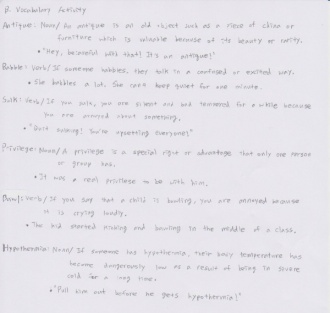 A. Vocabulary Activity
Antique: Noun/ An antique is an old object such as a piece of china or
furniture which is valuable because of its beauty or rarity.
• "Hey, be careful with that! It's an antique!"
Babble: Verb/ If someone babbles, they talk in a confused or excited way.
• She babbles a lot. She can't keep quiet for one minute.
Sulk: Verb/ If you sulk, you are silent and bad tempered for a while because
you are annoyed about something.
• "Quit sulking! You're upsetting everyone!"
Privilege: Noun/ A privilege is a special right or advantage that only one person
or group has.
• It was a real privilege to be with him.
Bawl: Verb/ If you say that a child is bawling, you are annoyed because
it is crying loudly.
• The kid started kicking and bawling in the middle of a class.
Hypothermia: Noun/ If someone has hypothermia, their body temperature has
become dangerously low as a result of being in severe
cold for a long time.
• "Pull him out before he gets hypothermia!"